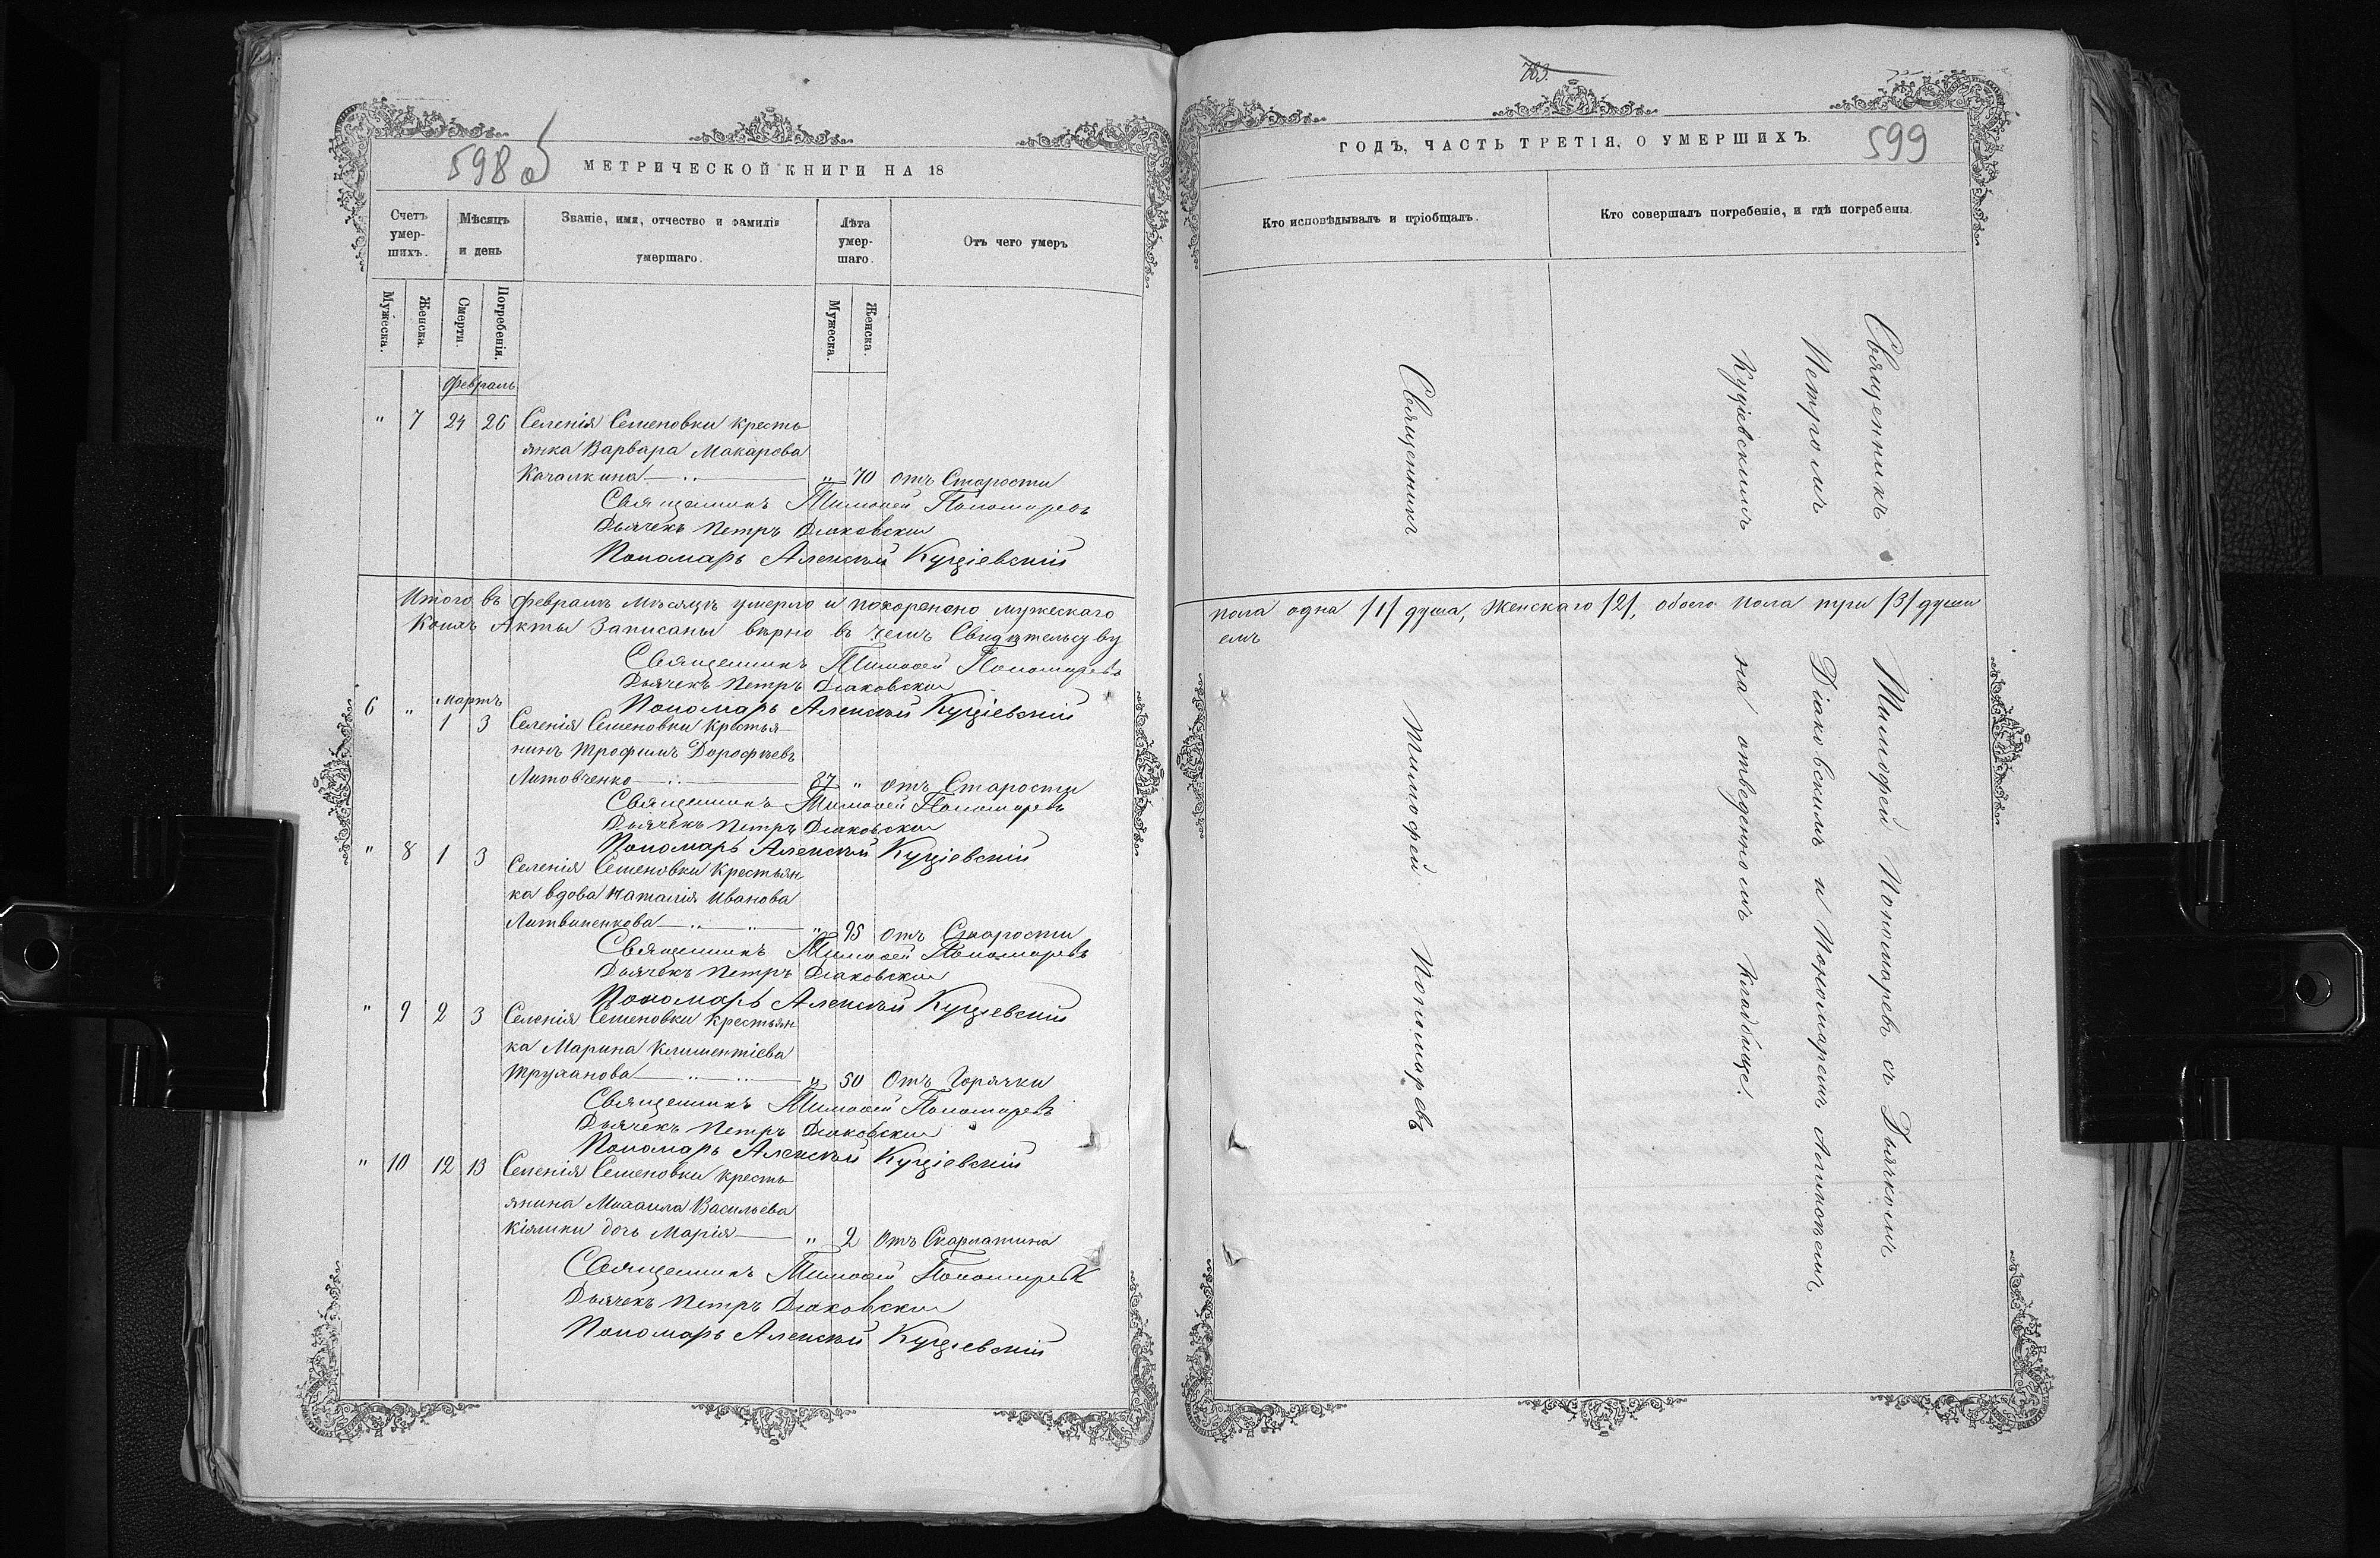 598 об
МЕТРИЧЕСКОЙ КНИГИ НА 18
Счетъ умер-шихъ.
Мѣсяцъ и день
Званіе, имя, отчество и фамилія умершаго.
Лѣта умер-шаго.
Отъ чего умеръ
Мужеска.
Женска.
Смерти.
Погребенія.
Мужеска.
Женска.
Февраль
" 7 24 26 Селенія Семеновки кресть
янка Варвара Макарова
Качалкина " 70 отъ Старости
Священникъ Тимоѳей Пономаревъ
Дьячекъ Петръ Діаковскій
Пономарь Алексѣй Куціевскій
Итого въ Февралѣ мѣсяцѣ умерло и похоронено мужескаго
Коихъ Акты Записаны вѣрно въ чемъ Свидѣтельству
Священникъ Тимоѳей Пономаревъ
Дьячекъ Петръ Діаковскій
Пономарь Алексѣй Куціевскій
Мартъ
6 " 1 3 Селенія Семеновки Крестья
нинъ Трофимъ Дорофѣевъ
Литовченко 87 " отъ Старости
Священникъ Тимоѳей Пономаревъ
Дьячекъ Петръ Діаковскій
Пономарь Алексѣй Куціевскій
" 8 1 3
Селенія Семеновки Крестьян
ка вдова Наталія Иванова
Литвиненкова " 95 отъ Старости
Священникъ Тимоѳей Пономаревъ
Дьячекъ Петръ Діаковскій
Пономарь Алексѣй Куціевскій
" 9 2 3 Селенія Семеновки крестьян
ка Марина Климентіева
Труханова " 50 Отъ Горячки
Священникъ Тимоѳей Пономаревъ
Дьячекъ Петръ Діаковскій
Пономарь Алексѣй Куціевскій
" 10 12 13 Селенія Семеновки кресть
янина Михаила Васильева
Кіяшки дочь Марія " 2 отъ Скарлатина
Священникъ Тимоѳей Пономаревъ
Дьячекъ Петръ Діаковскій
Пономарь Алексѣй Куціевскій
783.
ГОДЪ, ЧАСТЬ ТРЕТІЯ, О УМЕРШИХЪ.
599
Кто исповѣдывалъ и пріобщалъ.
Кто совершалъ погребеніе, и гдѣ погребены.
пола одна /1/ душа, Женскаго /2/, обоего пола три /3/ души
емъ
Священникъ Тимофей Пономаревъ
Священникъ Тимофей Пономаревъ съ Дьячкомъ
Петромъ Діаковскимъ и Пономаремъ Алексѣемъ
Куціевскимъ на отведенномъ Кладбище.